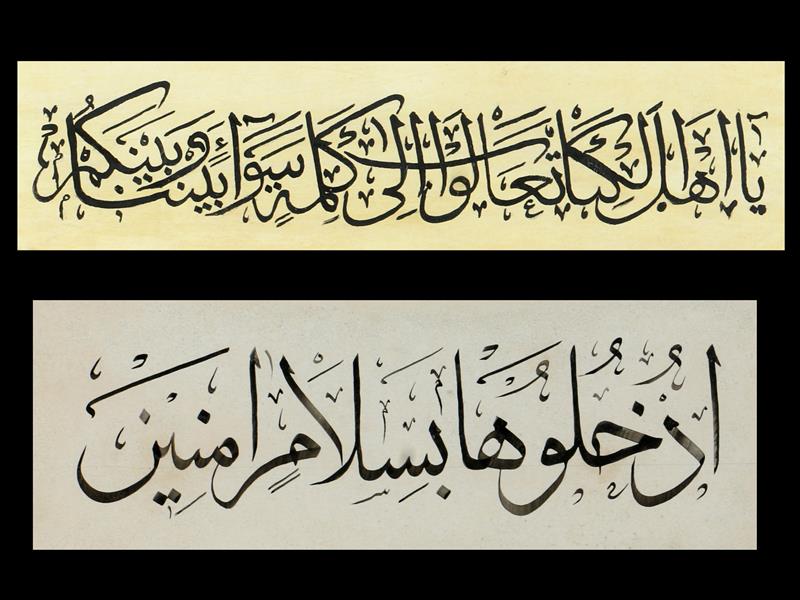 يَا اَهْلَ الْكِتَابِ تَعَالَوْا اِلٰى كَلِمَةٍ سَوَآءٍ بَيْنَنَا وَبَيْنَكُمْ
اُدْخُلُوهَا بِسَلَامٍ اٰمِنِينَ